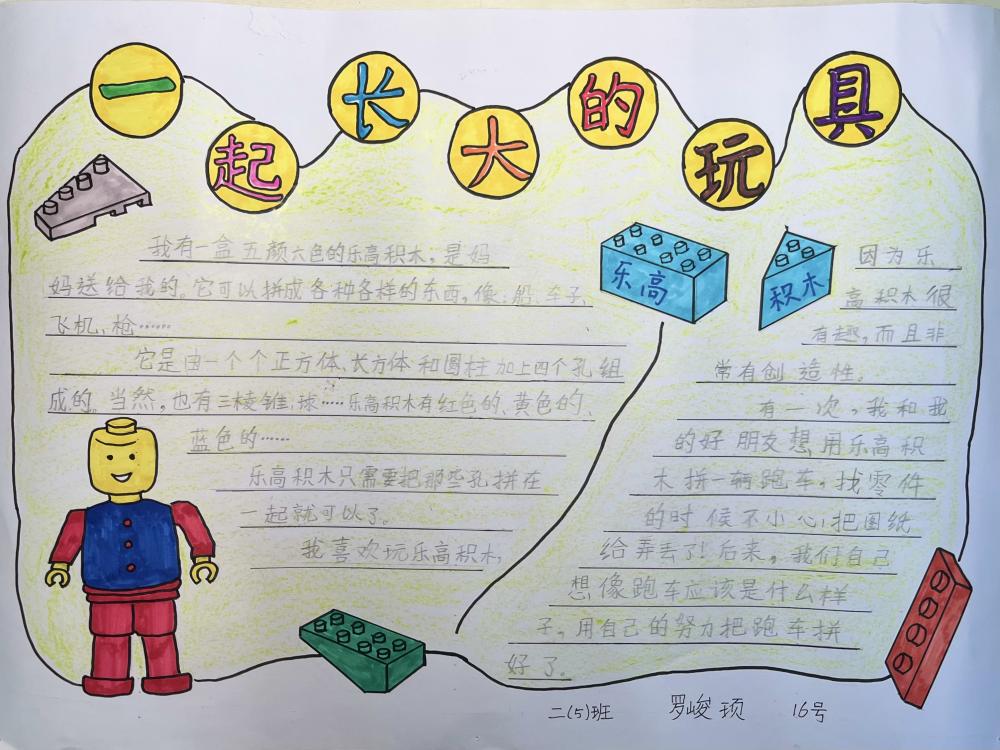 一起长大的玩具
我有一盒五颜六色的乐高积木，是妈
妈送给我的。它可以拼成各种各样的东西，像：船、车子、
飞机、枪……
它是由一个个正方体、长方体和圆柱加上四个孔组
成的。当然，也有三棱锥、球……乐高积木有红色的、黄色的、
蓝色的……
乐高积木只需要把那些孔拼在
一起就可以了。
我喜欢玩乐高积木，
乐高
积木
因为乐
高积木很
有趣，而且非
常有创造性。
有一次，我和我
的好朋友想用乐高积
木拼一辆跑车，找零件
的时候不小心把图纸
给弄丢了！后来，我们自己
想像跑车应该是什么样
子，用自己的努力把跑车拼
好了。
二(5)班 罗峻顼 16号